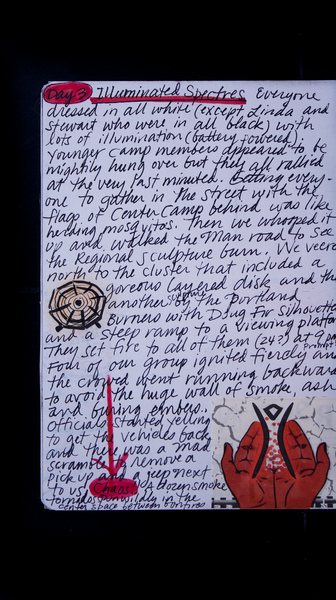 Day 3 Illuminated Spectres Everyone
dressed in all white (except Linda and
Stewart who were in all black) with
lots of illumination (battery powered).
Younger camp members appeared to be
mightily hung over but they all rallied
at the very last minute. Getting every-
one to gather in the street with the
flags of Center Camp behind was like
herding mosquitos. Then we whooped it
up and walked the Man road to see
the Regional Sculpture burn. We veered
north to the cluster that included a
gorgeous layered disk and the
another by the Portland
sculpture
Burners with Doug Fir silhouette
and a steep ramp to a viewing platform
they set fire to all of them (24?) at 9 pm
prompt
Four of our group ignited fiercely and
the crowd went running backward
to avoid the huge wall of smoke, ash
and burning embers.
Officials started yelling
to get the vehicles back
and there was a mad
scramble to remove a
pick up and a jeep next
to us. Chaos A dozen smoke
tornados wildly in the
center space between bonfires